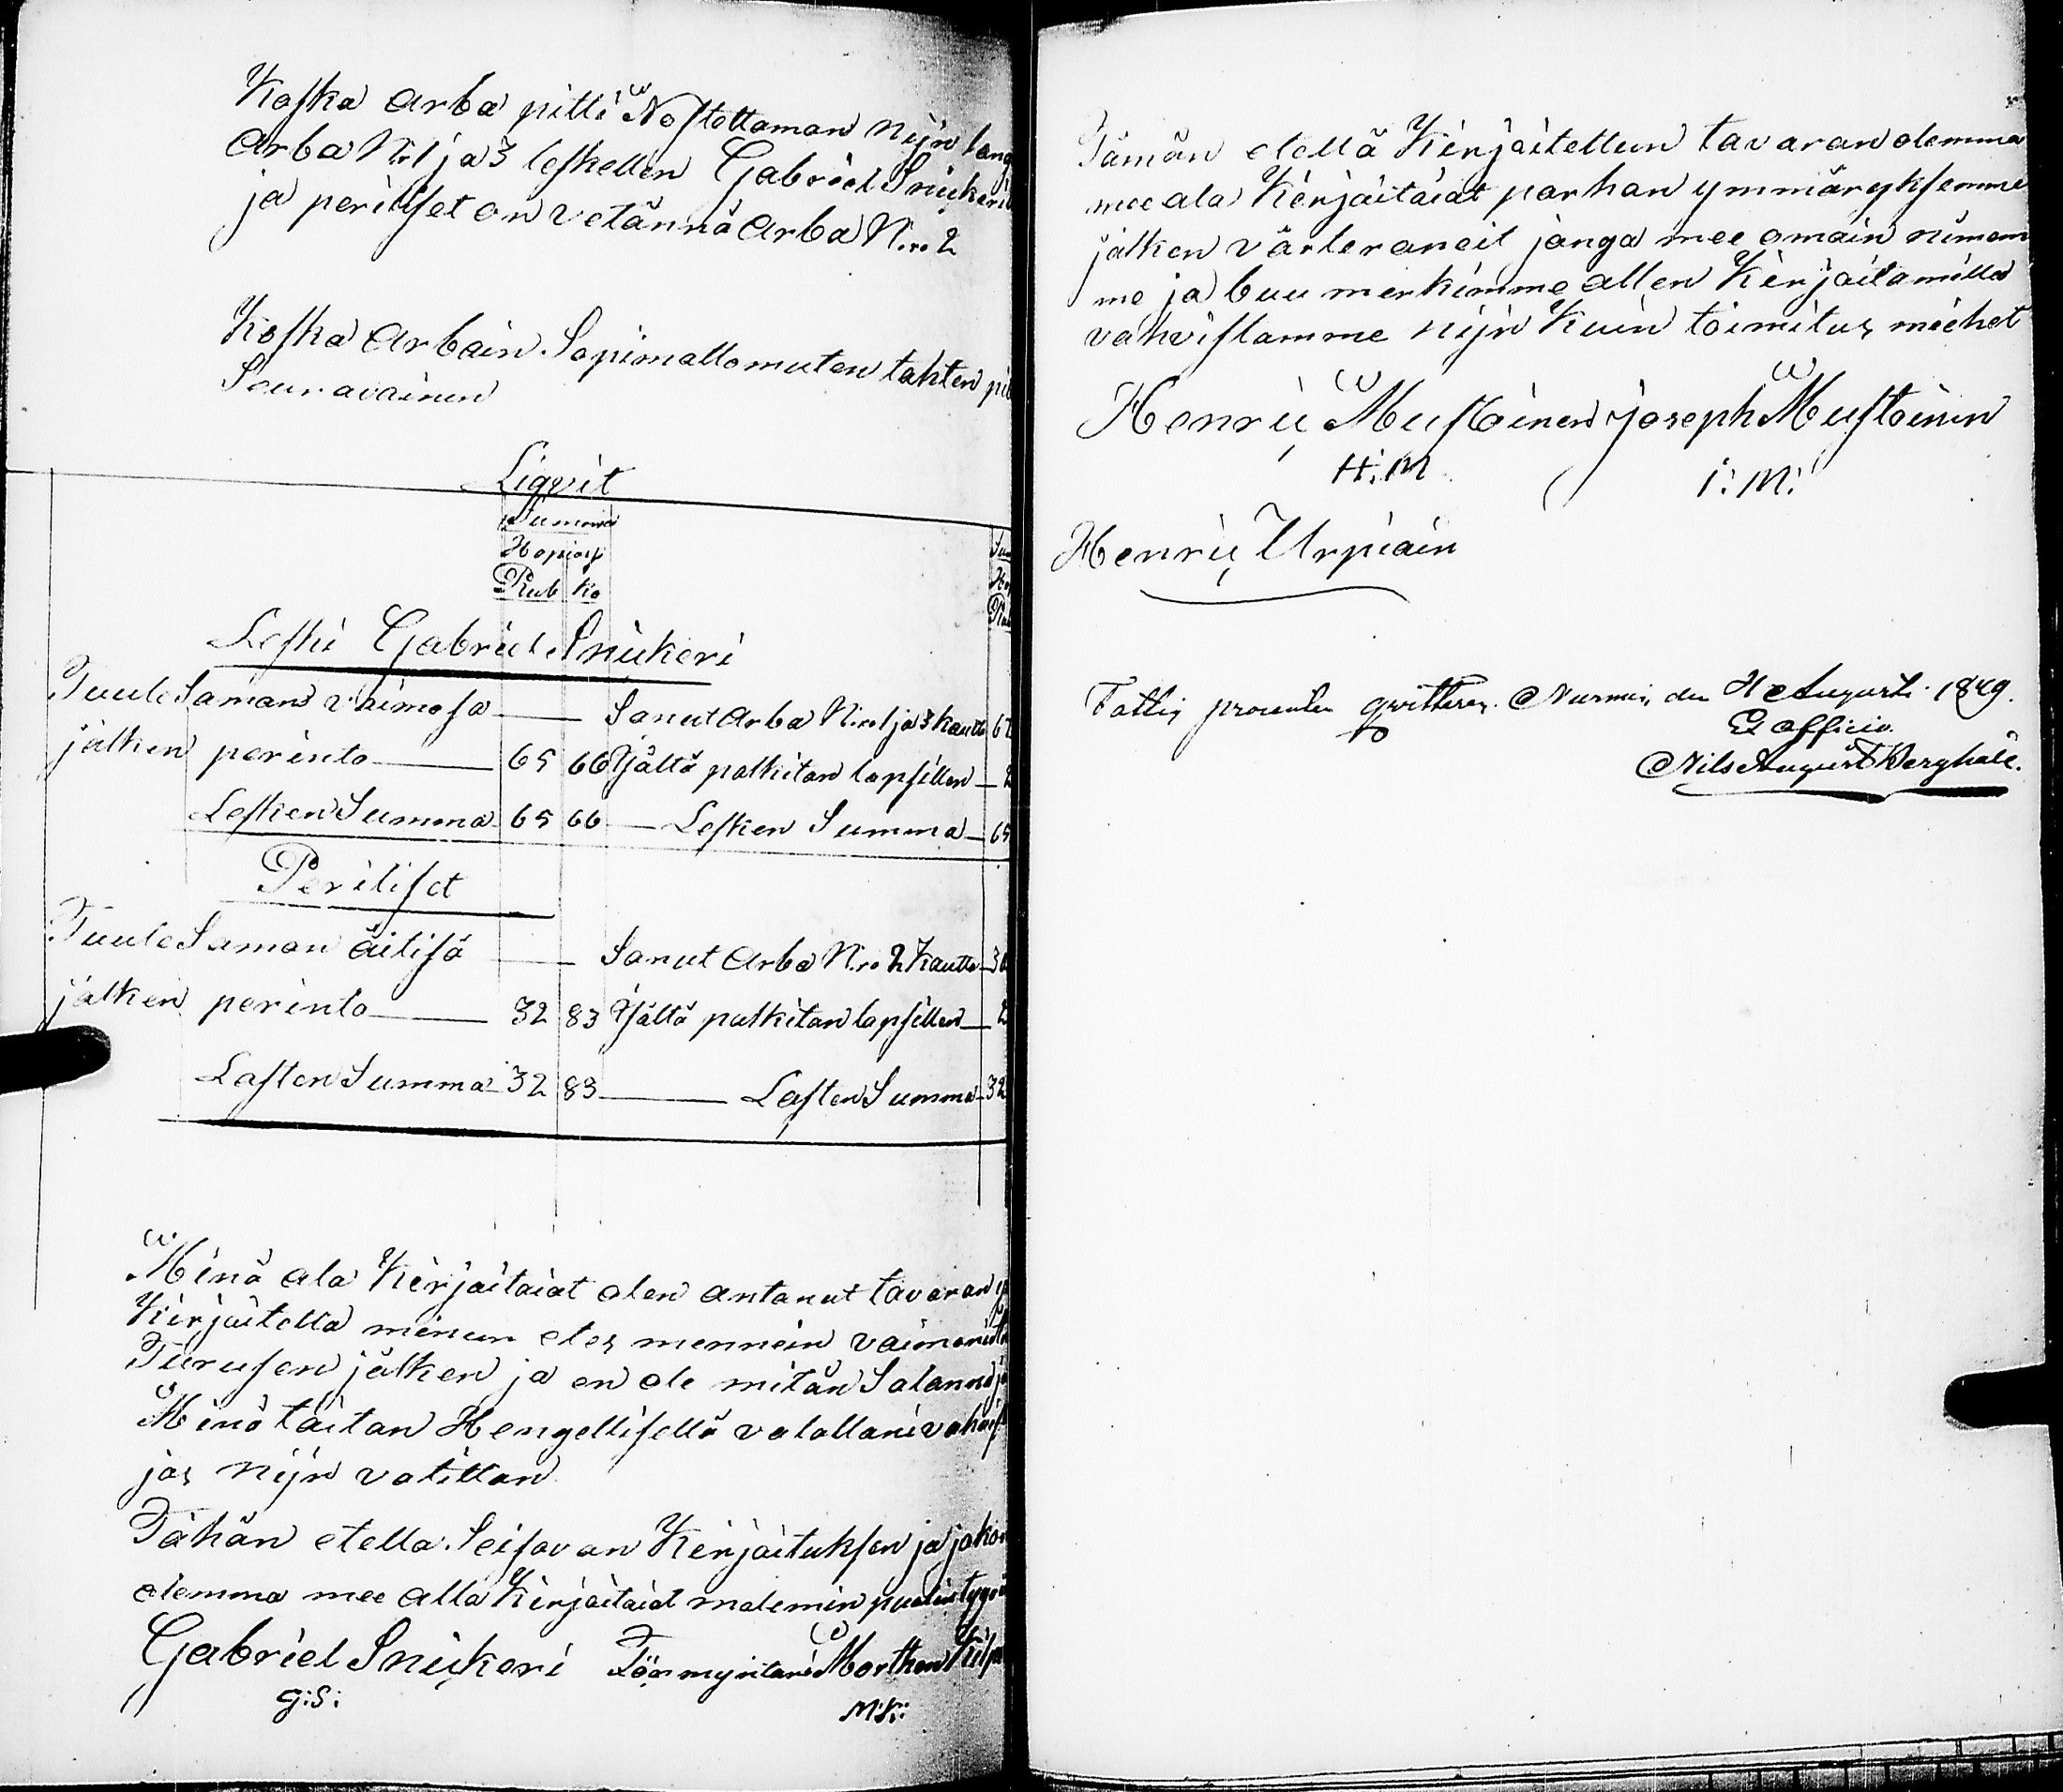 Koska Arba pitti Nostottaman nijn lang
Arba N:1 ja 3 leskellen Gabriel Snickeri
ja perilliset on vetännä Arba N:ro 2
Koska Arbain Sopimattomuten tahten pit
Seuravainen
Liqvit
Summa
Hopiasi
Rub Ko
Leski Gabriel Snickeri
Tuule Saman vaimosa Sanut Arba N:ro 1 ja 3 kautta 67
jälken perinto 65 66 Yjältä palkitan lapsillen 2
Lesken Summa 65 66 Lesken Summa 65
Periliset
Tuule Saman äitisä Sanut Arba N:ro 2 Kautta 30
jälken perinto 32 83 Yjältä palkitan lapsillen 2
Lasten Summa 32 83 Lasten Summa 32
Minä ala Kirjaitaiat olen antanut tavaran
Kirjaitella minun edes mennein vaimoni
Turusen jälken ja en ole mitän Salannu
Minä täitan Hengellisellä valallani vahvis
jos nijn votittan
Tähän etella Seisovan Kirjaituksen ja jakon
olemma mee alla Kirjaitaiat molemin puolin tyy
Gabriel Snickeri Förmyntari Morthen Kilpe
G:S: M:K:
Tämän etellä Kirjaitettun tavaran olemma
mee ala Kirjaitaiat parhan ymmäryksemme
jälken värteraneit janga mee omain nimem
me ja buumerkimme allen Kirjaitamilla
vahvistamme nijn Kuin toimitus miehet
Henric Mustoinen joseph Mustoinin
H:M I:M:
Henric Urpiain
Fattig procenten qvitteras. Nurmis den 21 Augusti 1849.
Ex officio.
Nils August Berghäll.